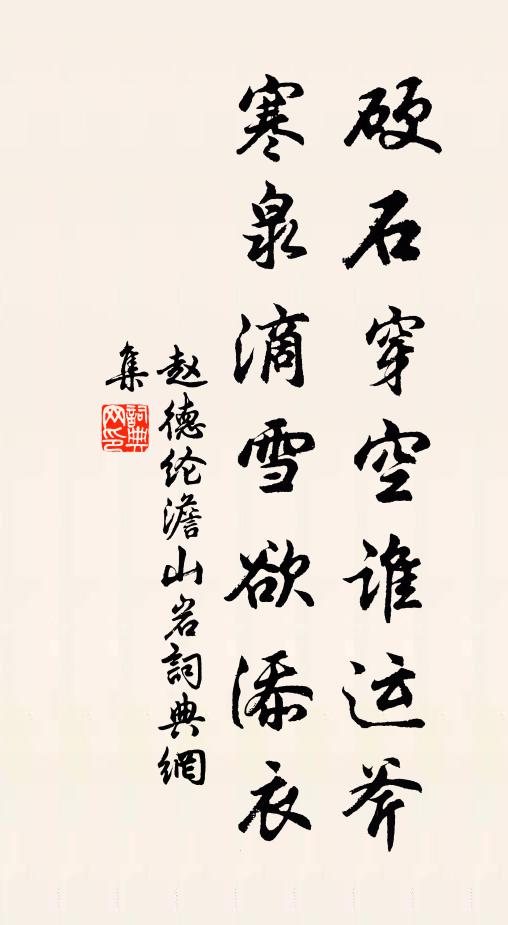 硬石穿空谁运斧
寒泉滴雪欲添衣
赵德纶澹山岩詞典網
集
詞典网印